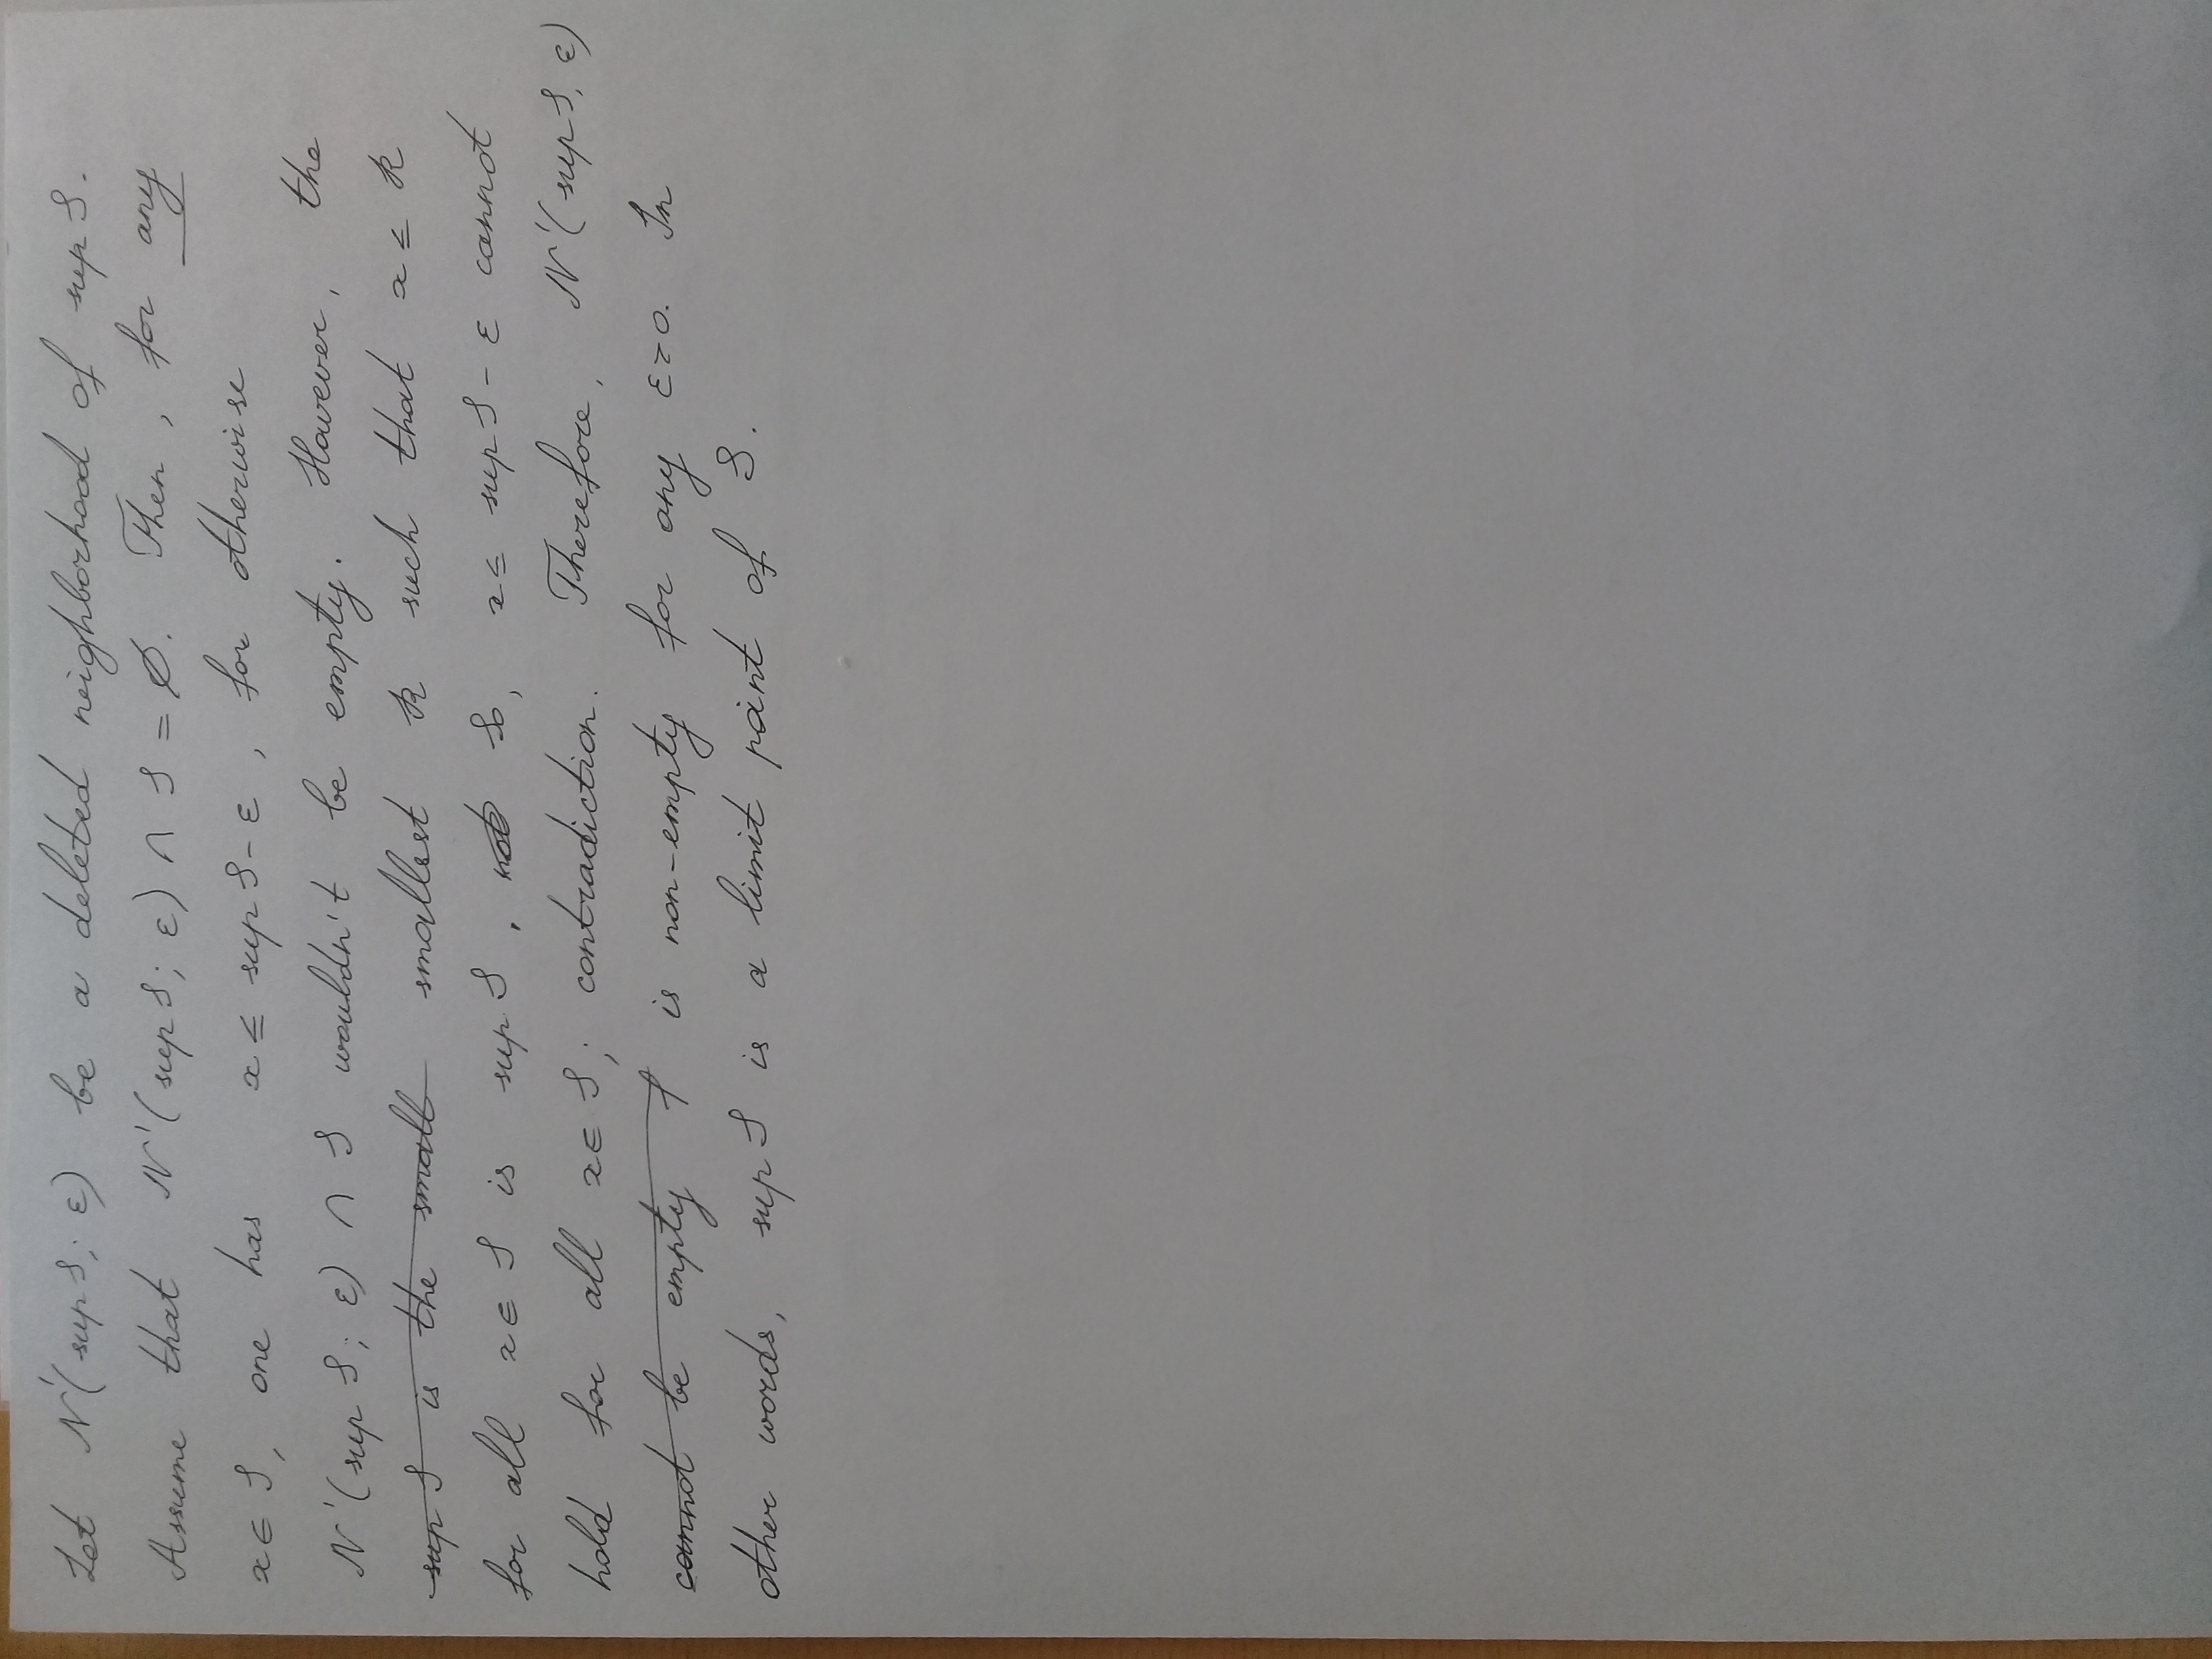 Let N'(sup S; ε) be a deleted neighborhood of sup S.
Assume that N'(sup S; ε) ∩ S = ∅. Then, for any
x ∈ S, one has x ≤ sup S - ε, for otherwise
N'(sup S; ε) ∩ S wouldn't be empty. However, the
sup S is the small smallest k such that x ≤ k
for all x ∈ S is sup S. not So, x ≤ sup S - ε cannot
hold for all x ∈ S; contradiction. Therefore, N'(sup S, ε)
cannot be empty f is non-empty for any ε>0. In
other words, sup S is a limit point of S.